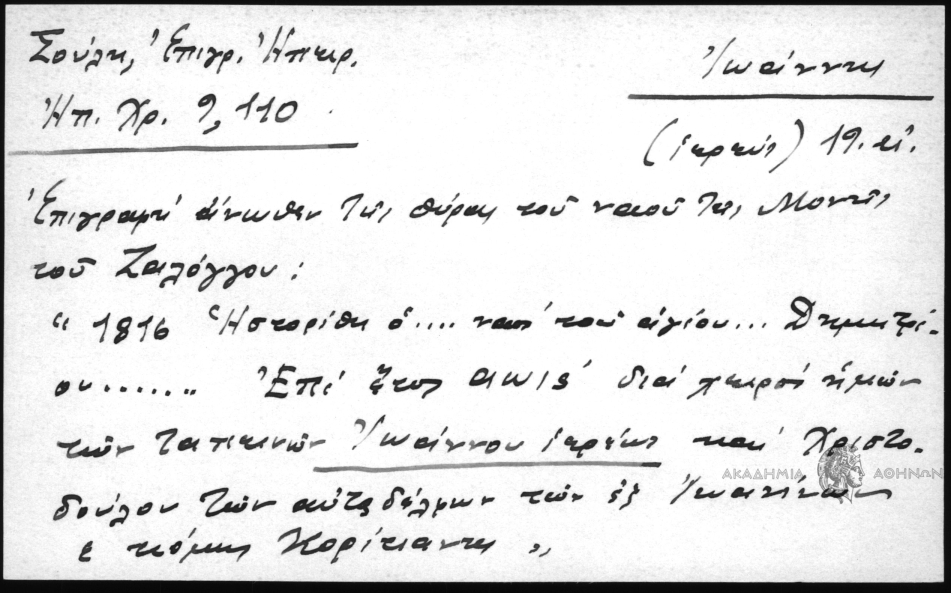 Σούλη, Ἐπιγρ. Ἠπειρ.
Ἠπ. Χρ. 9, 110
Ἰωάννης
(ἱερεύς) 19. αἰ.
Ἐπιγραφή ἄνωθεν τῆς θύρας τοῦ ναοῦ τῆς Μονῆς
τοῦ Ζαλόγγου:
"1816 Ἡστορίθη ὁ.... ναός τοῦ ἁγίου... Δημητρί-
ου........ Ἐπί ἔτος αωις' διά χειρός ἡμῶν
τῶν ταπεινῶν Ἰωάννου ἱερέως καί Χριστο-
δούλου τῶν αὐταδέλφων τῶν ἐξ Ἰωαννίνων
ΑΚΑΔΗΜΙΑ ΑΘΗΝΩΝ
ς κόμης Κορίτιανης"